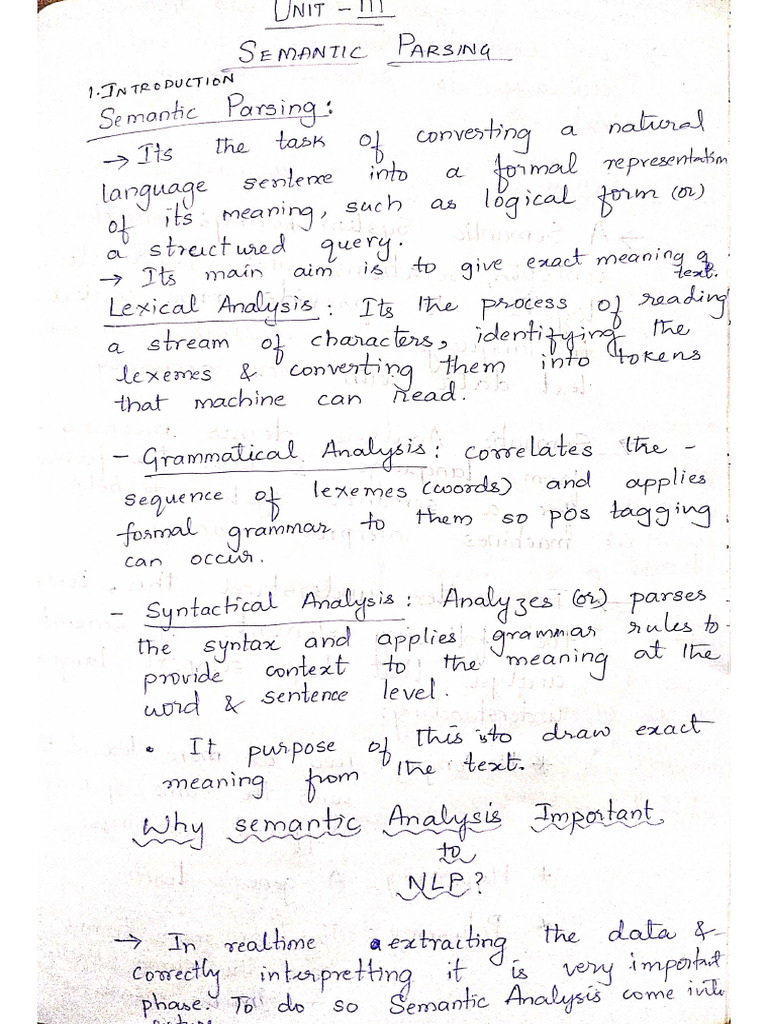 UNIT - III
SEMANTIC PARSING
1. INTRODUCTION
Semantic Parsing:
→ Its the task of converting a natural
language sentence into a formal representation
of its meaning, such as logical form (or)
a structured query.
→ Its main aim is to give exact meaning of
text.
Lexical Analysis: Its the process of reading
a stream of characters, identifying the
lexemes & converting them into tokens
that machine can read.
- Grammatical Analysis: correlates the -
sequence of lexemes (words) and applies
formal grammar to them so pos tagging
can occur.
- Syntactical Analysis: Analyzes (or) parses
the syntax and applies grammar rules to
provide context to the meaning at the
word & sentence level.
• It purpose of this is to draw exact
meaning from the text.
Why semantic Analysis Important
to
NLP?
→ In realtime extracting the data &
correctly interpretting it is very important
phase. To do so Semantic Analysis come into
picture